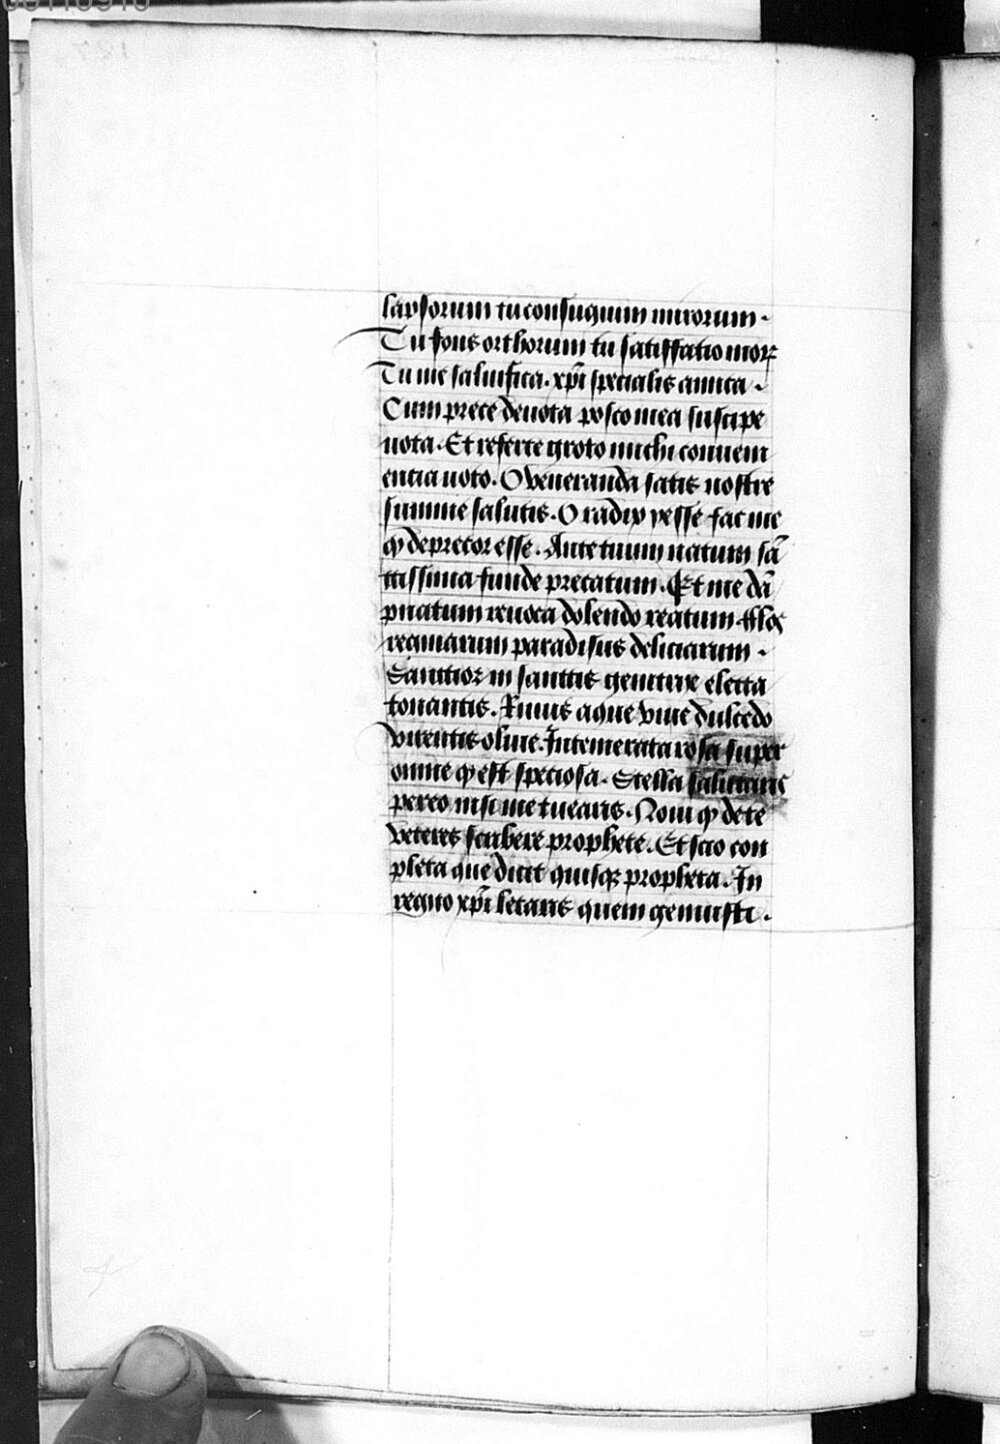 lapsorum tu consuquim mirorum.
Tu fons orthorum tu satisffatio morꝝ
Tu me saluifica. xp̄i specialis amica.
Cum prece deuota posco mea suscipe
uota. Et referre groto michi conueni
encia uoto. O veneranda satis nostre
summe salutis. O radix yesse fac me
ꝙ deprecor esse. Ante tuum natum sā
ttissima funde precatum. Et me dā
pnatum reuoca dolendo reatum. fflos
regniarum paradisus deliciarum.
Santtior in santtis genitrix eletta
tonantis. Riuus aque viue dulcedo
virentis oliue. Intemerata rosa super
omne ꝙ est speciosa. Stella salutaris
pereo nisi me tuearis. Noui ꝙ de te
veteres scribere prophete. Et scio con
pleta que dicit quisqꝫ propheta. In
regno xp̄i letaris quem genuisti.